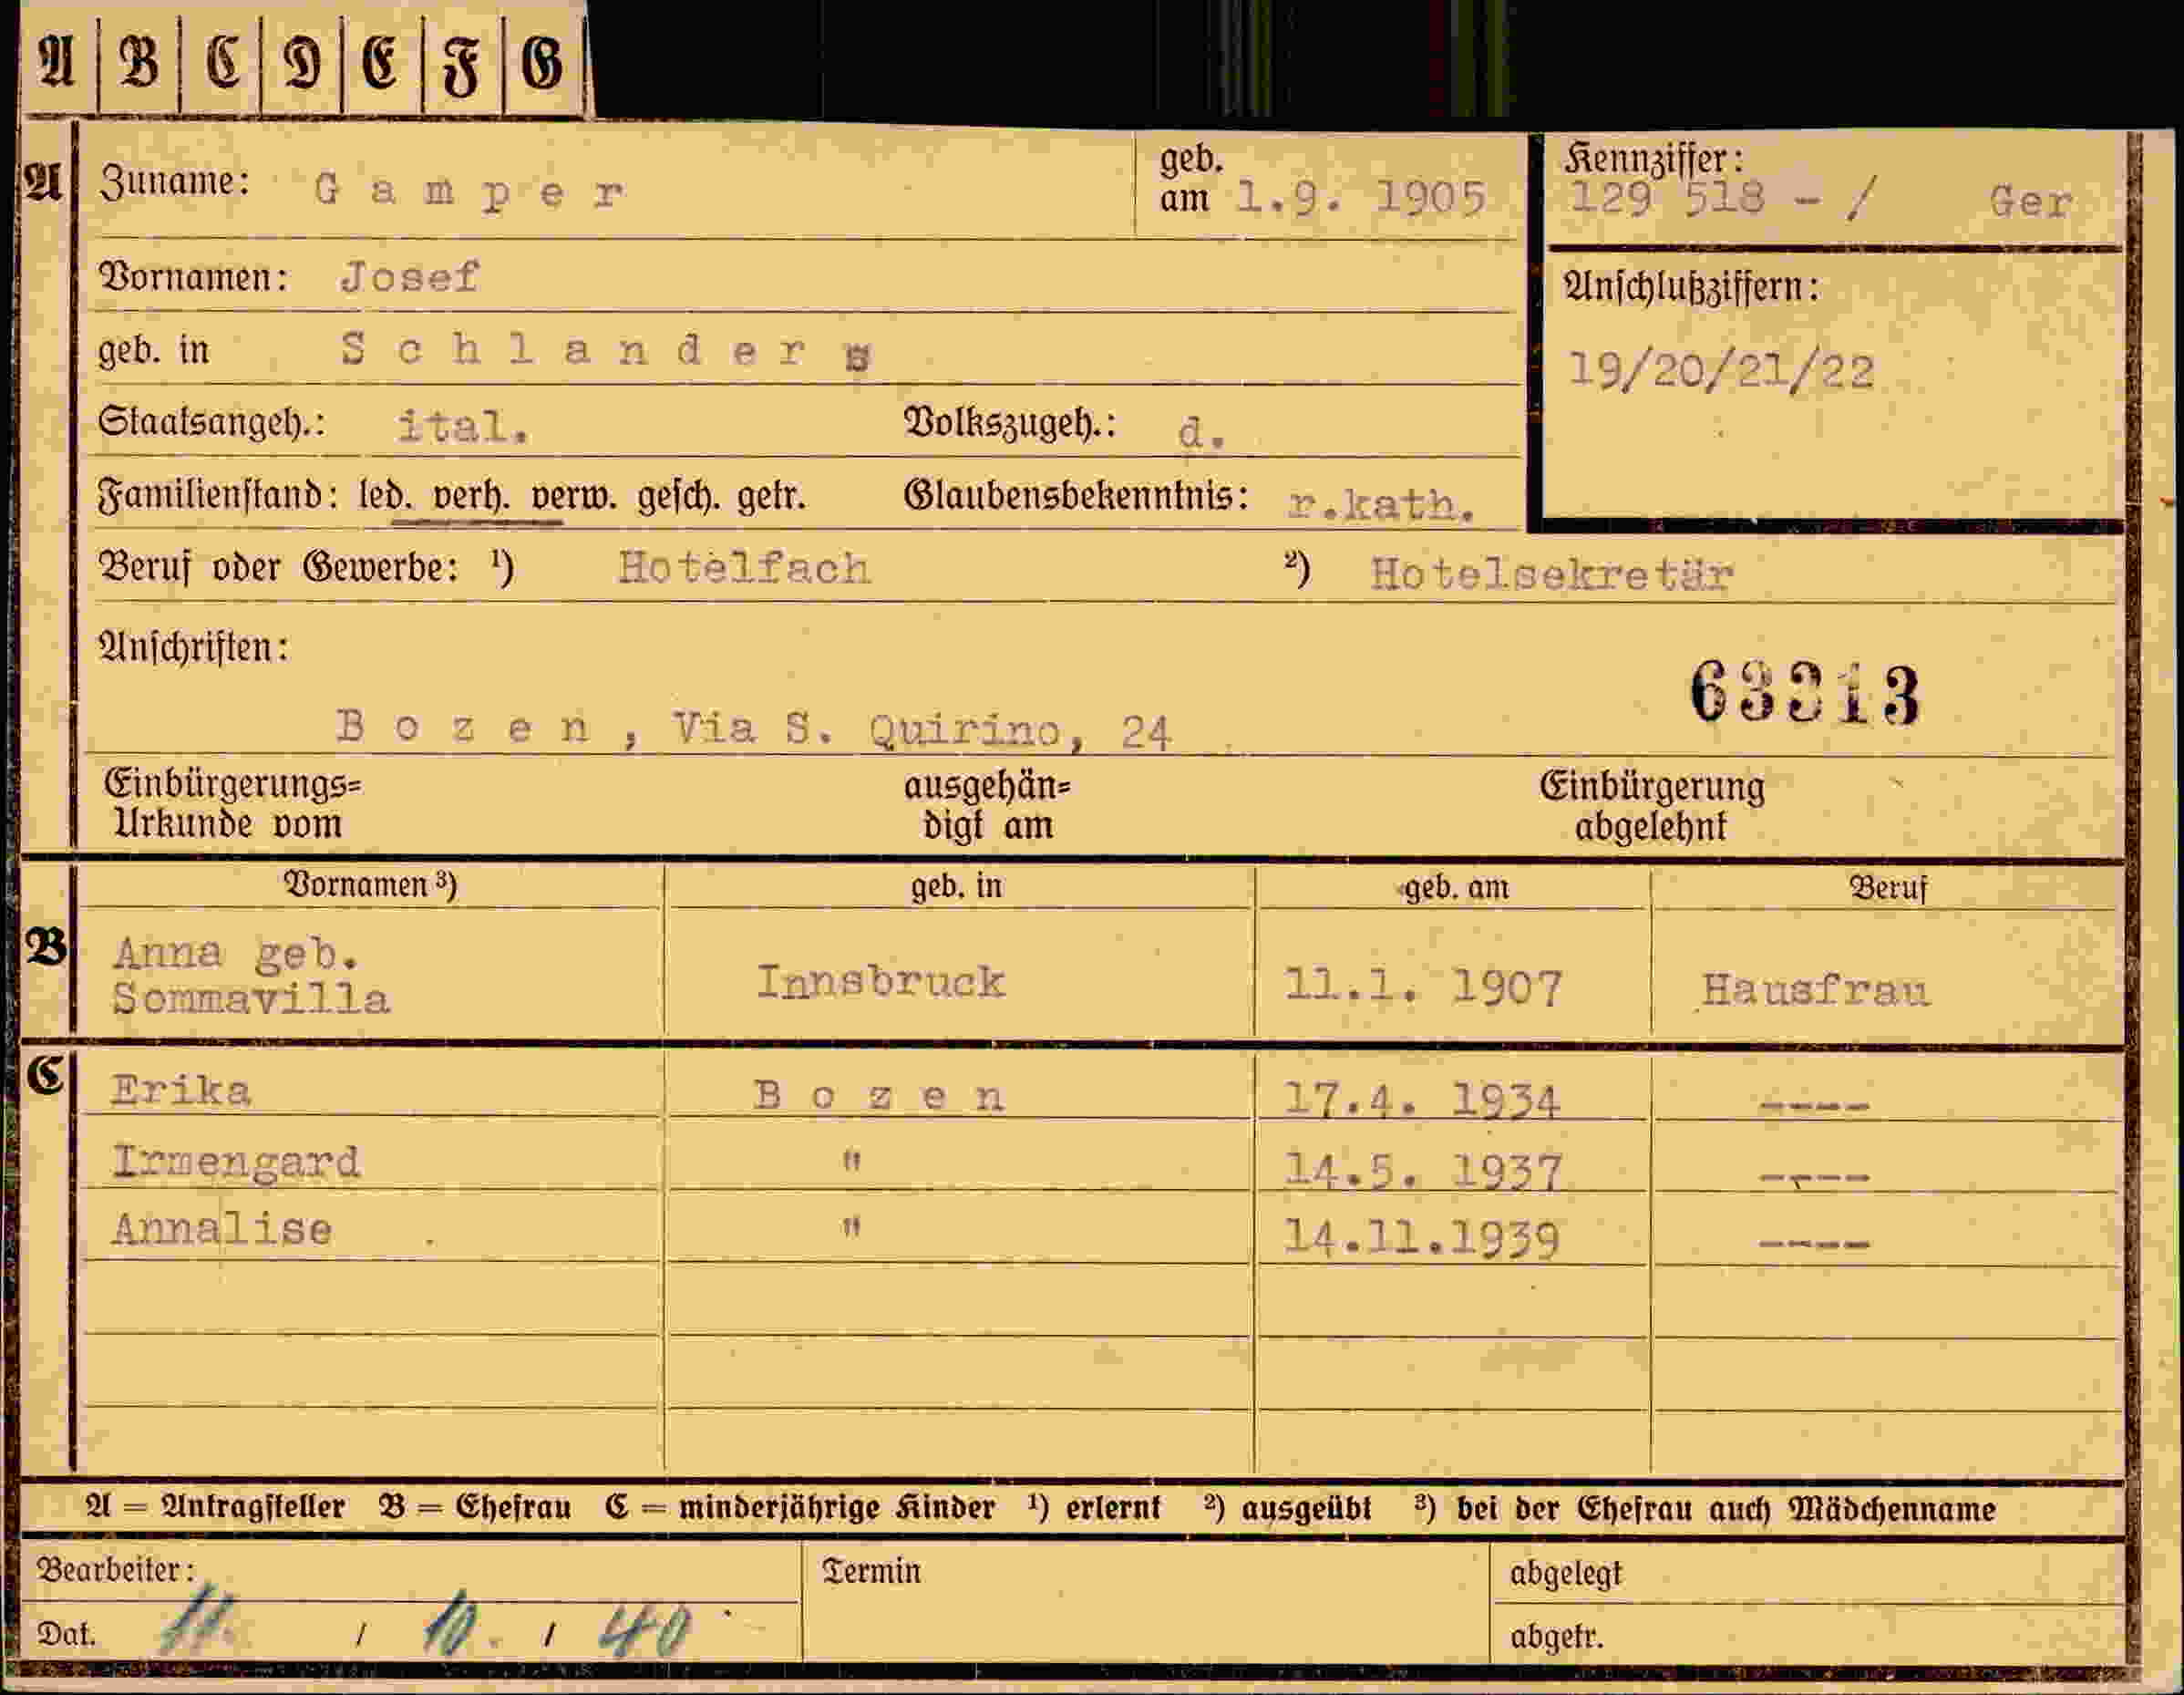 A B C D E F G
A Zuname: Gamper geb. am 1.9. 1905 Kennziffer: 129 518 - / Ger
Vornamen: Josef Anschlußziffern:
geb. in Schlanders 19/20/21/22
Staatsangeh.: ital. Volkszugeh.: d.
Familienstand: led. verh. verw. gesch. getr. Glaubensbekenntnis: r.kath.
Beruf oder Gewerbe: ¹) Hotelfach ²) Hotelsekretär
Anschriften:
63313
Bozen, Via S. Quirino, 24
Einbürgerungs= ausgehän= Einbürgerung
Urkunde vom digt am abgelehnt
Vornamen ³) geb. in geb. am Beruf
B Anna geb.
Sommavilla Innsbruck 11.1. 1907 Hausfrau
C Erika Bozen 17.4. 1934 ----
Irmengard " 14.5. 1937 ----
Annalise " 14.11.1939 ----
A = Antragsteller B = Ehefrau C = minderjährige Kinder ¹) erlernt ²) ausgeübt ³) bei der Ehefrau auch Mädchenname
Bearbeiter: Termin abgelegt
Dat. 11. / 10. / 40 abgetr.